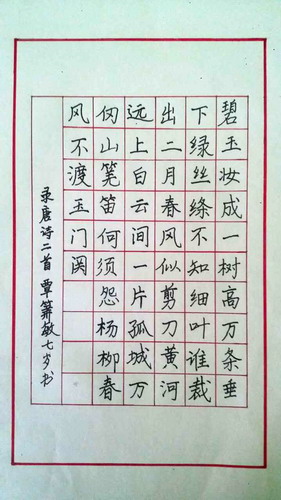 碧玉妆成一树高万条垂
下绿丝绦不知细叶谁裁
出二月春风似剪刀黄河
远上白云间一片孤城万
仞山羌笛何须怨杨柳春
风不渡玉门关
录唐诗二首 覃箫敏七岁书